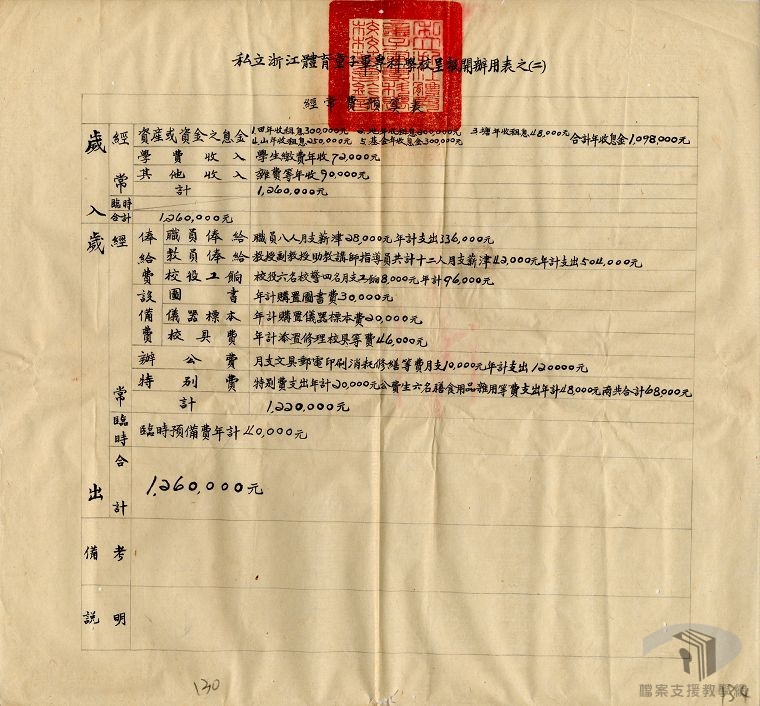 私立浙江體育童子軍專科學校呈報開辦用表之(二)
經常費預算表
歲入
經常
資產或資金之息金
1.田年收租息300,000元 2.地年收租息200,000元 3.塘年收租息48,000元
4.山年收租息250,000元 5.基金年收息金300,000元
合計年收息金1,098,000元
學費收入 學生繳費年收72,000元
其他收入 雜費等年收90,000元
計 1,260,000元
臨時
合計 1,260,000元
歲出
經常
俸給費
職員俸給 職員八人月支薪津28,000元年計支出336,000元
教員俸給 教授副教授助教講師指導員共計十二人月支薪津42,000元年計支出504,000元
校役工餉 校役六名校警四名月支工餉8,000元年計96,000元
設備費
圖書 年計購置圖書費30,000元
儀器標本 年計購置儀器標本費20,000元
校具費 年計添置修理校具等費46,000元
辦公費 月支文具郵電印刷消耗修繕等費月支10,000元年計支出120000元
特別費 特別費支出年計20,000元公費生六名膳食用品雜用等費支出年計48,000元兩共合計68,000元
計 1,220,000元
臨時 臨時預備費年計40,000元
合計 1,260,000元
備考
說明
130
134
檔案支援教學網